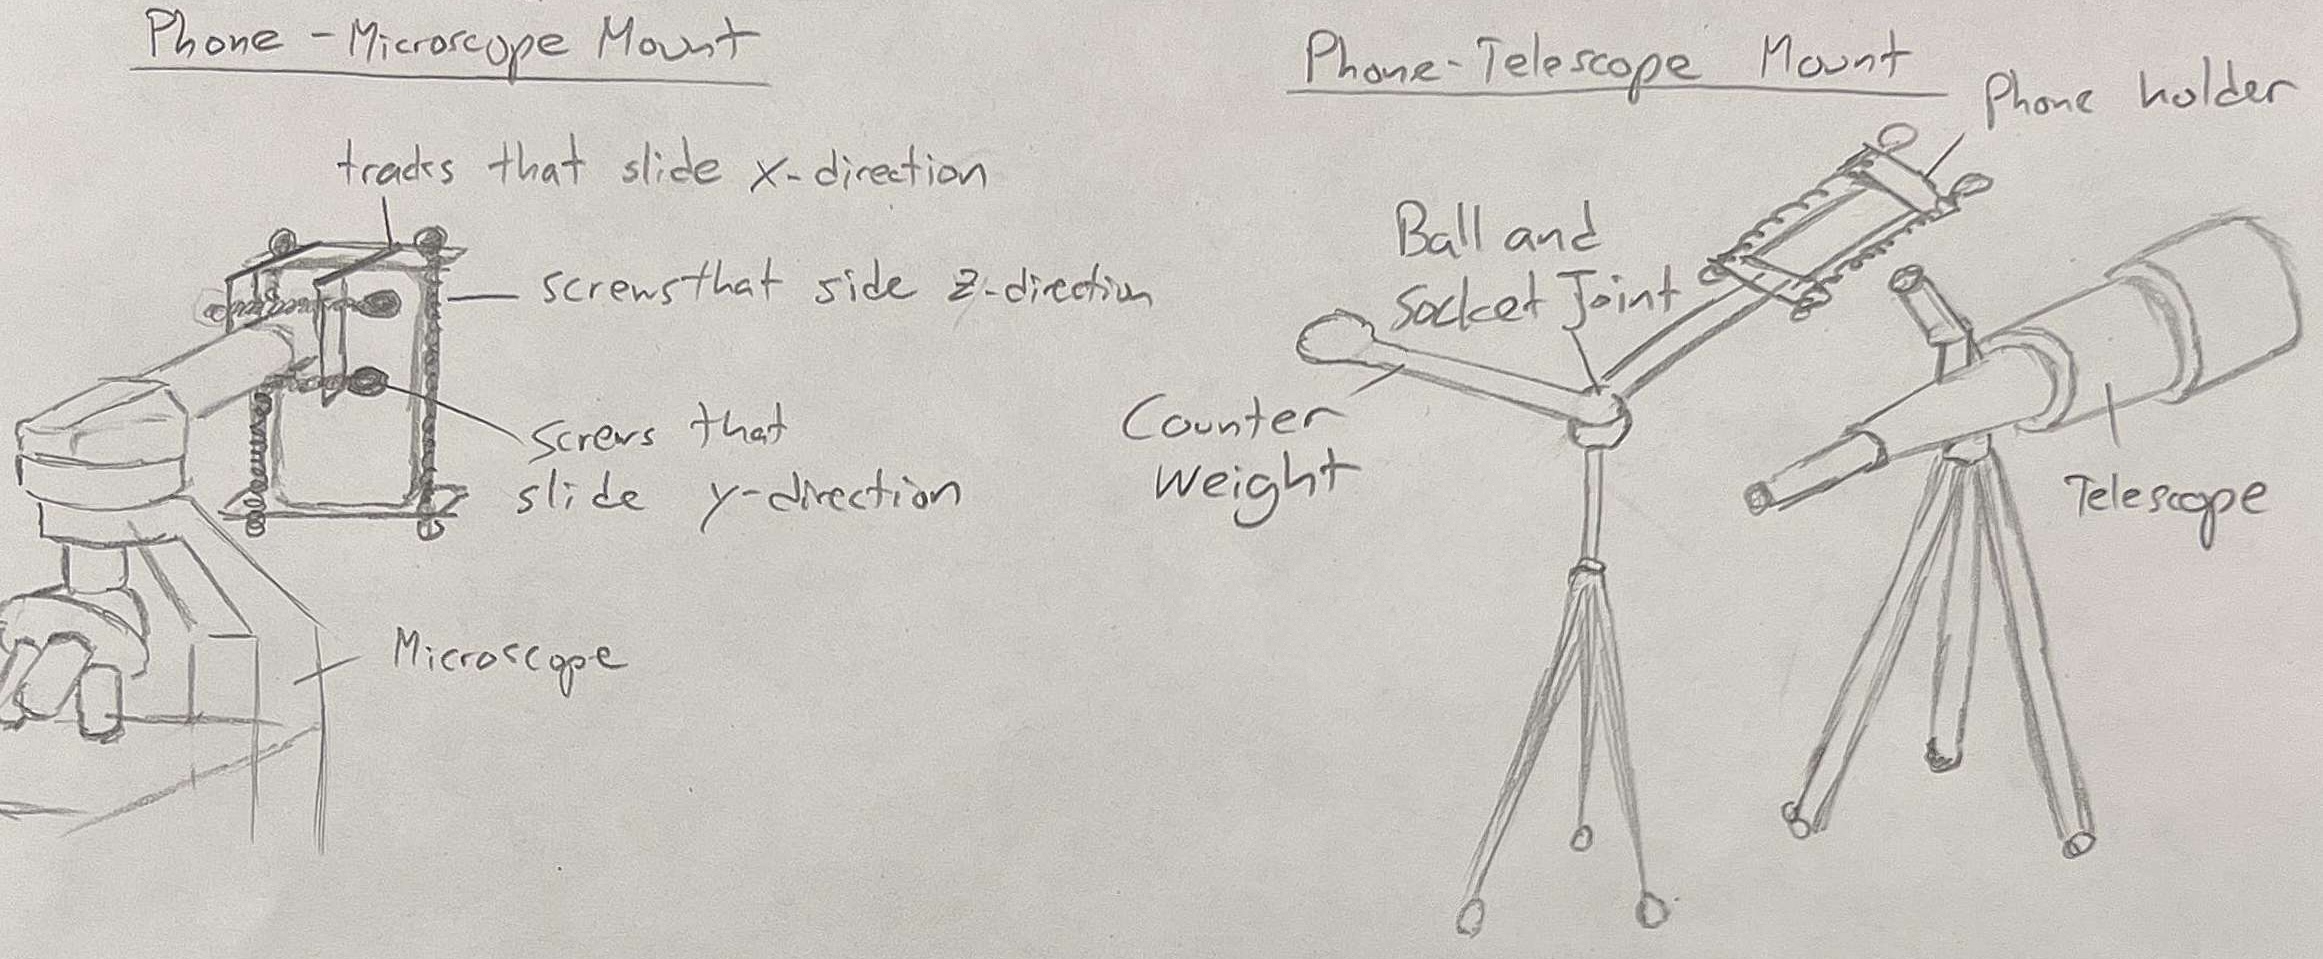 Phone - Microscope Mount
tracks that slide x-direction
screws that side z-direction
screws that
slide y-direction
Microscope
Phone-Telescope Mount
Phone holder
Ball and
Socket Joint
Counter
weight
Telescope